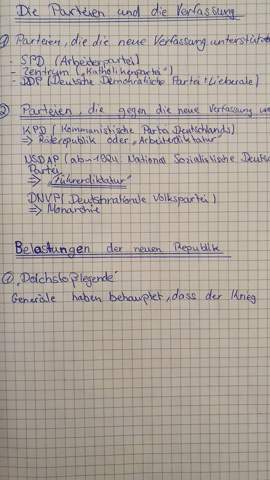 Die Parteien und die Verfassung
① Parteien, die die neue Verfassung unterstützt
- SPD (Arbeiterpartei)
- Zentrum („Katholikenpartei")
- DDP (Deutsche Demokratische Partei: Liberale)
② Parteien, die gegen die neue Verfassung
KPD (Kommunistische Partei Deutschlands)
⇒ Räterepublik oder „Arbeiterdiktatur"
NSDAP (ab 1924 National Sozialistische Deutsche
Partei
⇒ „Führerdiktatur"
DNVP (Deutschnationale Volkspartei)
⇒ Monarchie
Belastungen der neuen Republik
① „Dolchstoßlegende"
Generäle haben behauptet, dass der Krieg